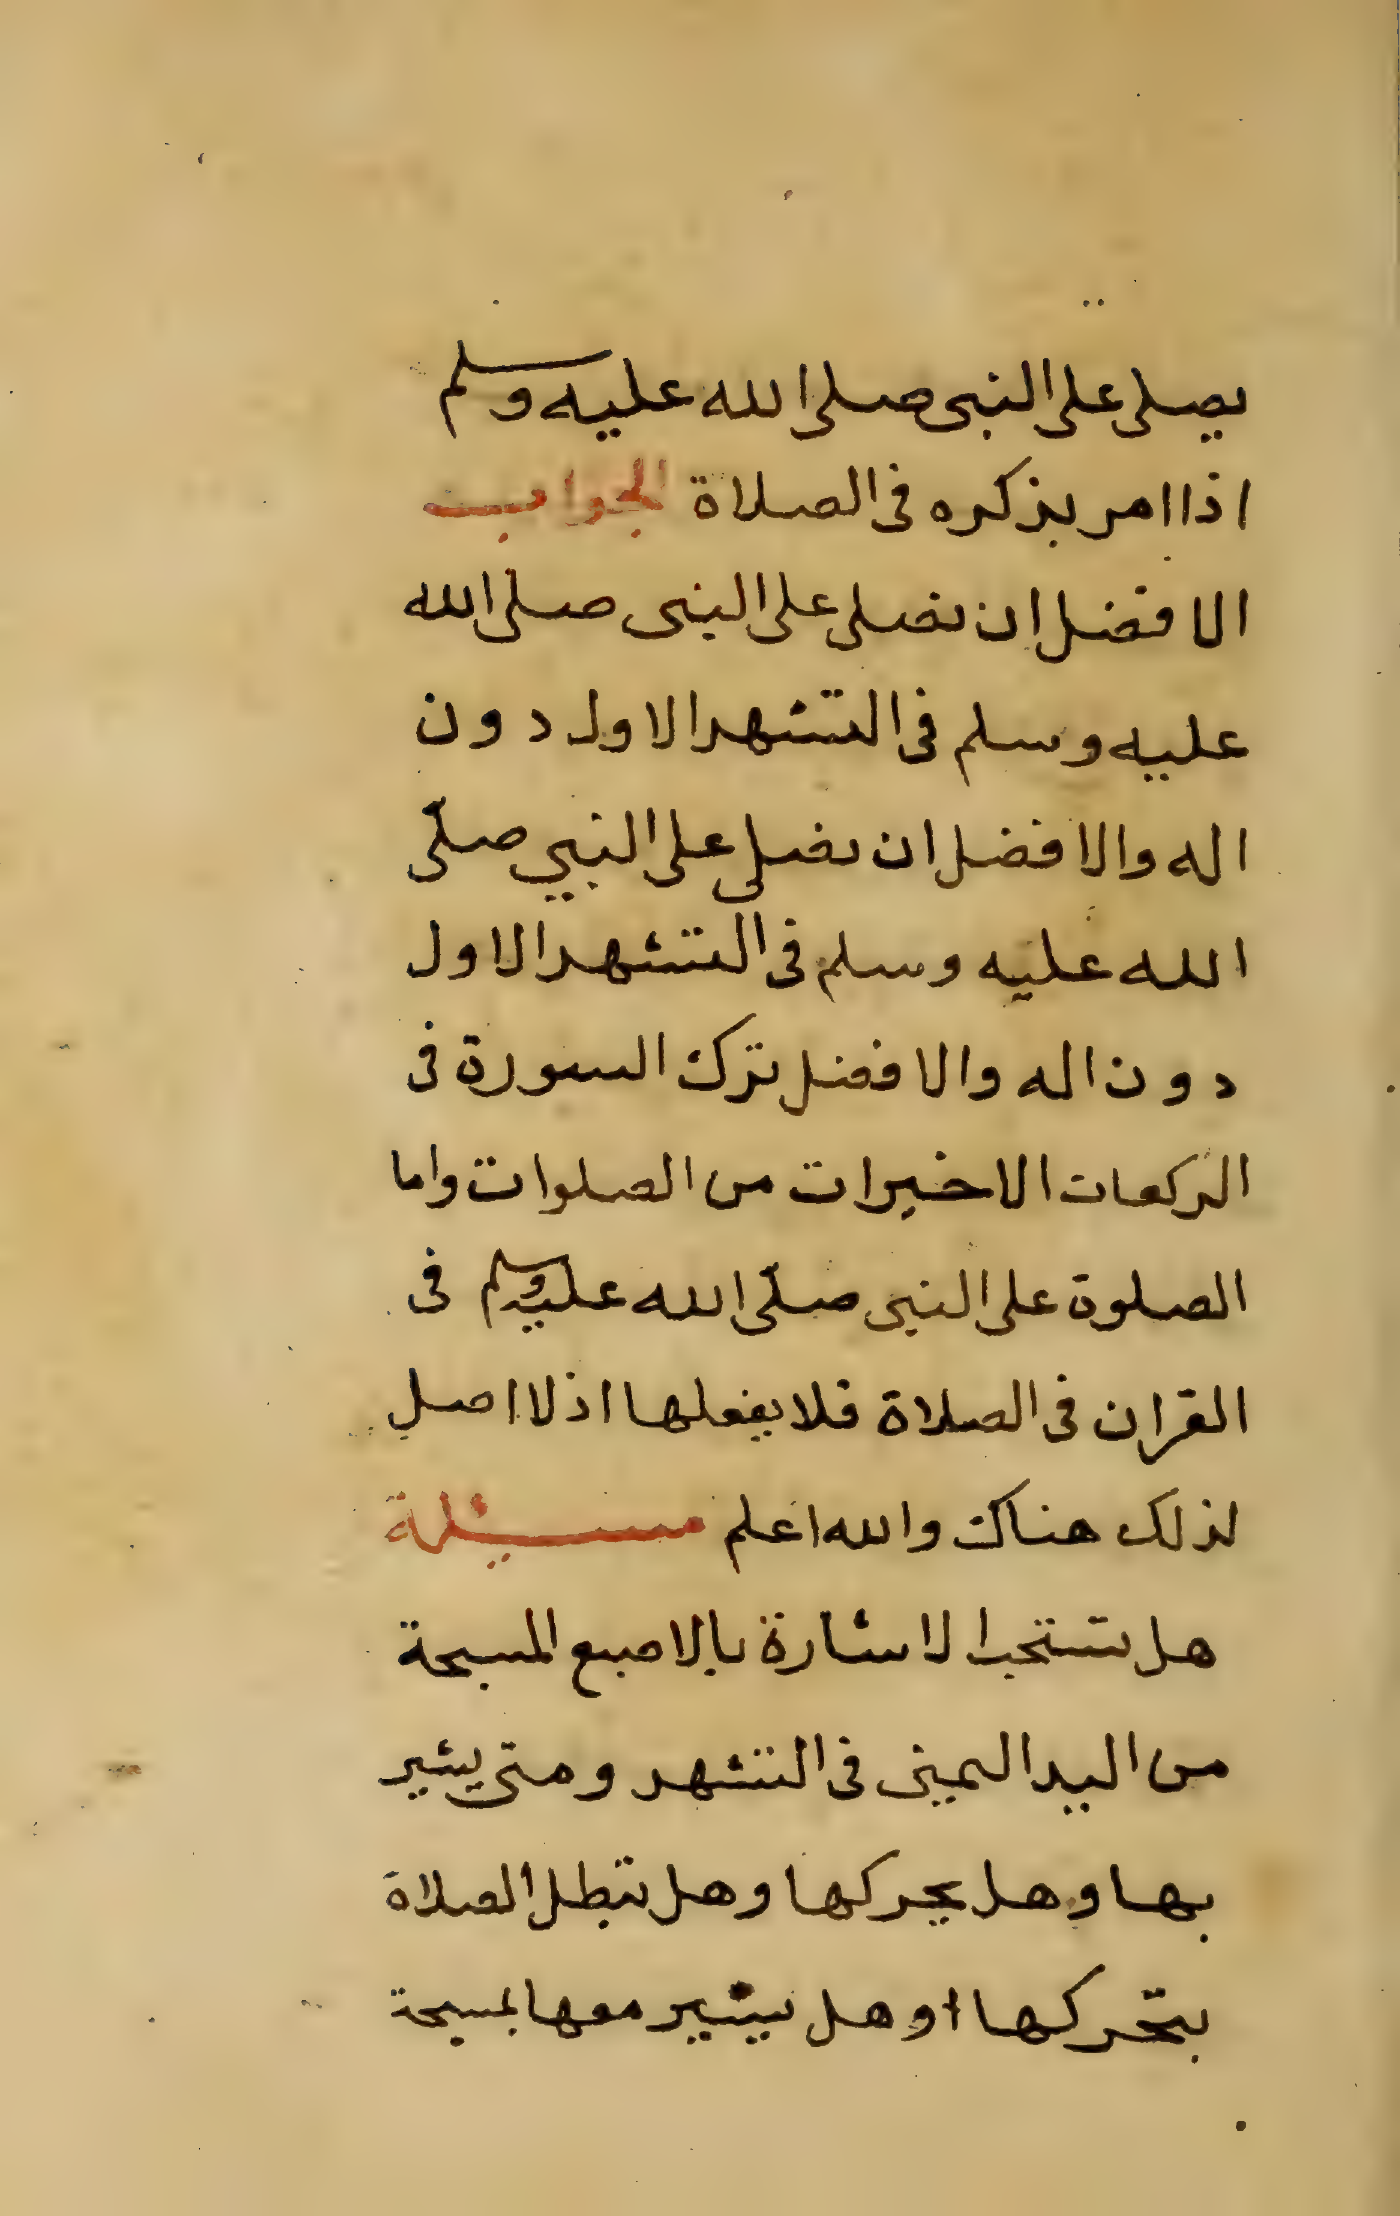 يصلى على النبى صلى الله عليه وسلم
اذا امر بذكره فى الصلاة الجواب
الافضل ان يصلى على النبى صلى الله
عليه وسلم فى التشهد الاول دون
اله والافضل ان يصلي على النبي صلّى
الله عليه وسلم فى التشهد الاول
دون اله والافضل ترك السورة فى
الركعات الاخيرات من الصلوات واما
الصلوة على النبى صلّى الله عليه وسلم فى
القران فى الصلاة فلا يفعلها اذ لا اصل
لذلك هناك والله اعلم مسئلة
هل تستحب الاشارة بالاصبع المسبحة
من اليد اليمينى فى التشهد ومتى يشير
بها وهل يحركها وهل تبطل الصلاة
بتحركها او هل يشير معها بمسبحة